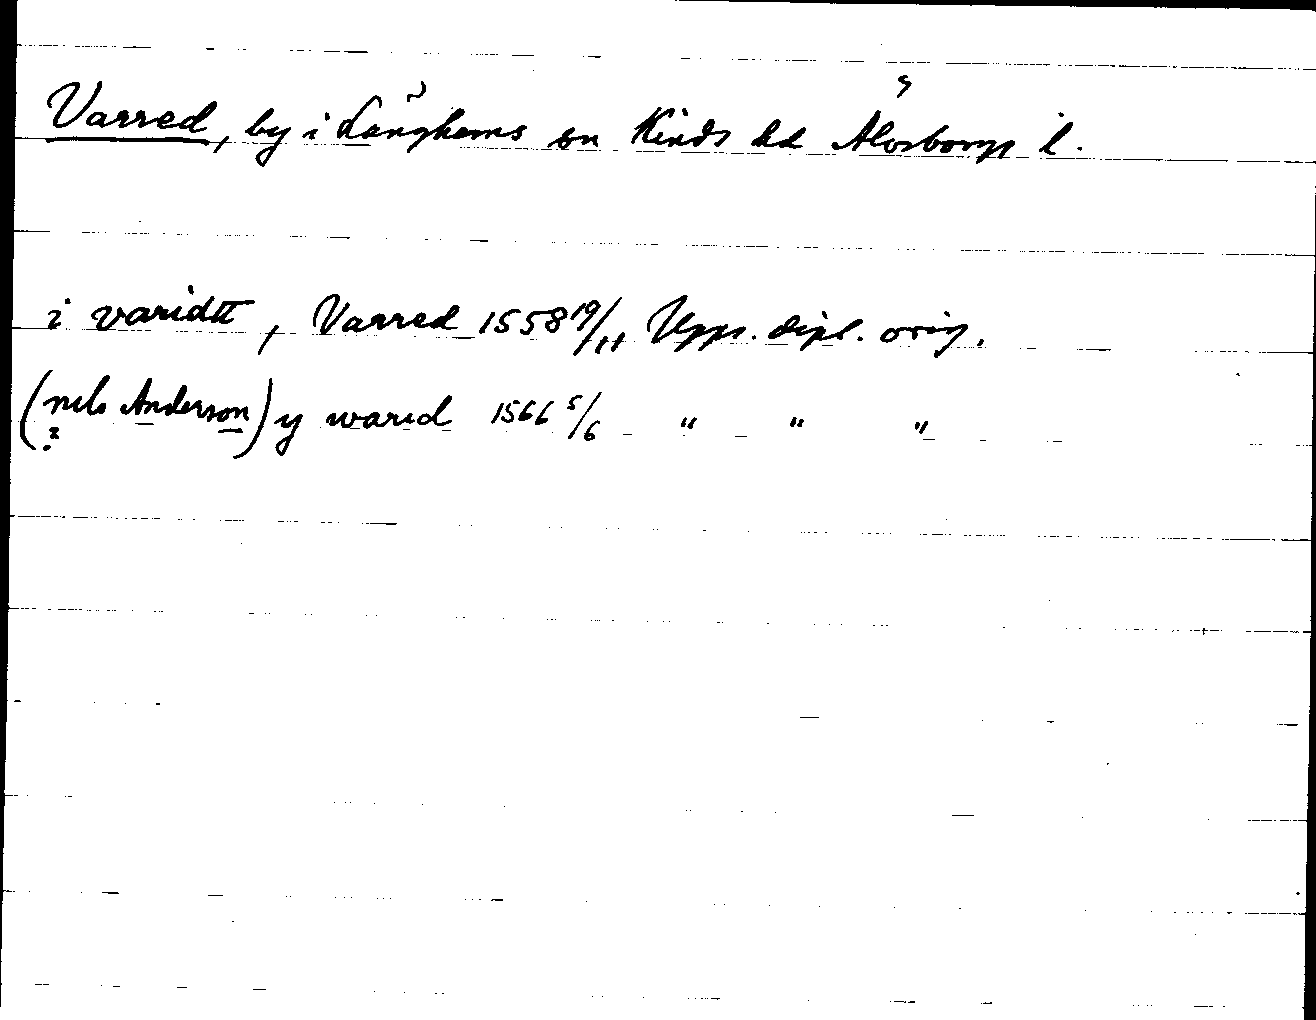 Varred, by i Långhems sn Kinds hd Älvsborgs l.
i varidtt, Varred 1558 19/11 Upps. dipl. orig.
(nels Anderson) y warid 1566 5/6 " " "